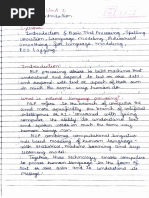 Unit 1
Introduction
Introduction & Basic Text Processing, Spelling
Correction, Language Modeling, Advanced
smoothing for language modeling,
POS tagging
Introduction
NLP strives to build machines that
understand and respond to text or voice data
and respond with text or speech of their own
in much the same way humans do.
What is natural language processing?
NLP refers to the branch of computer
and more specifically the branch of artificial
intelligence or AI concerned with giving
computers the ability to understand text and
spoken words in much the same way
human beings can.
NLP combines computational linguistics
rule based modeling of human language
with statistical, machine learning and deep
learning models.
Together these technology enable computers
to process human language in the form of
text or voice data and to understand its
message.